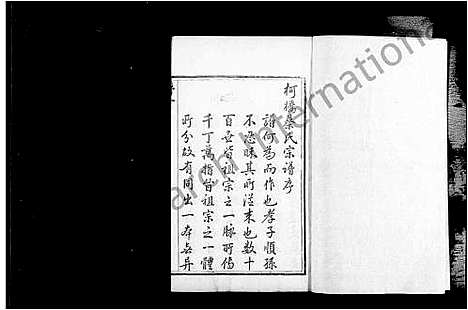 柯橋桑氏宗譜序
譜何為而作也孝子順孫
不忍昧其所從來也數十
百世皆祖宗之一脉所傳
千丁萬指皆祖宗之一體
所分故有同出一本無異